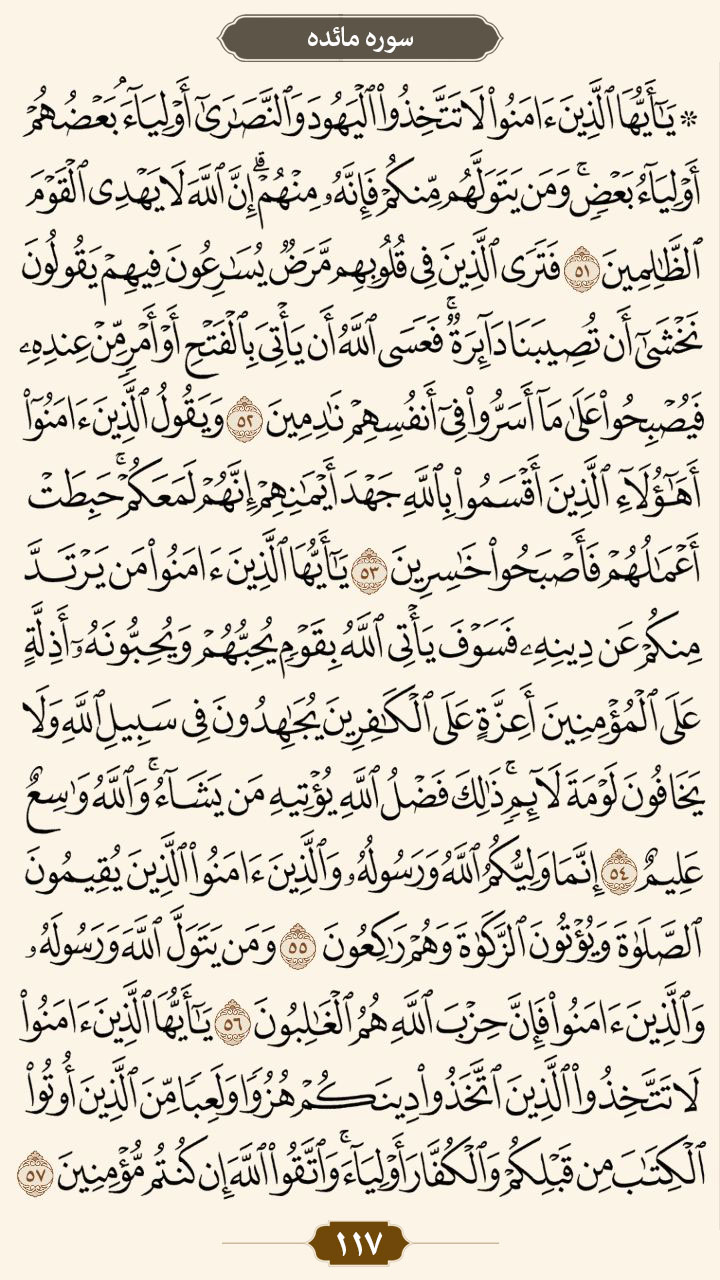 سوره مائده
۞ يَٰٓأَيُّهَا ٱلَّذِينَ ءَامَنُوا۟ لَا تَتَّخِذُوا۟ ٱلْيَهُودَ وَٱلنَّصَٰرَىٰٓ أَوْلِيَآءَ ۘ بَعْضُهُمْ
أَوْلِيَآءُ بَعْضٍ ۚ وَمَن يَتَوَلَّهُم مِّنكُمْ فَإِنَّهُۥ مِنْهُمْ ۗ إِنَّ ٱللَّهَ لَا يَهْدِى ٱلْقَوْمَ
ٱلظَّٰلِمِينَ ٥١ فَتَرَى ٱلَّذِينَ فِى قُلُوبِهِم مَّرَضٌ يُسَٰرِعُونَ فِيهِمْ يَقُولُونَ
نَخْشَىٰٓ أَن تُصِيبَنَا دَآئِرَةٌ ۚ فَعَسَى ٱللَّهُ أَن يَأْتِىَ بِٱلْفَتْحِ أَوْ أَمْرٍ مِّنْ عِندِهِۦ
فَيُصْبِحُوا۟ عَلَىٰ مَآ أَسَرُّوا۟ فِىٓ أَنفُسِهِمْ نَٰدِمِينَ ٥٢ وَيَقُولُ ٱلَّذِينَ ءَامَنُوٓا۟
أَهَٰٓؤُلَآءِ ٱلَّذِينَ أَقْسَمُوا۟ بِٱللَّهِ جَهْدَ أَيْمَٰنِهِمْ إِنَّهُمْ لَمَعَكُمْ ۚ حَبِطَتْ
أَعْمَٰلُهُمْ فَأَصْبَحُوا۟ خَٰسِرِينَ ٥٣ يَٰٓأَيُّهَا ٱلَّذِينَ ءَامَنُوا۟ مَن يَرْتَدَّ
مِنكُمْ عَن دِينِهِۦ فَسَوْفَ يَأْتِى ٱللَّهُ بِقَوْمٍ يُحِبُّهُمْ وَيُحِبُّونَهُۥٓ أَذِلَّةٍ
عَلَى ٱلْمُؤْمِنِينَ أَعِزَّةٍ عَلَى ٱلْكَٰفِرِينَ يُجَٰهِدُونَ فِى سَبِيلِ ٱللَّهِ وَلَا
يَخَافُونَ لَوْمَةَ لَآئِمٍ ۚ ذَٰلِكَ فَضْلُ ٱللَّهِ يُؤْتِيهِ مَن يَشَآءُ ۚ وَٱللَّهُ وَٰسِعٌ
عَلِيمٌ ٥٤ إِنَّمَا وَلِيُّكُمُ ٱللَّهُ وَرَسُولُهُۥ وَٱلَّذِينَ ءَامَنُوا۟ ٱلَّذِينَ يُقِيمُونَ
ٱلصَّلَوٰةَ وَيُؤْتُونَ ٱلزَّكَوٰةَ وَهُمْ رَٰكِعُونَ ٥٥ وَمَن يَتَوَلَّ ٱللَّهَ وَرَسُولَهُۥ
وَٱلَّذِينَ ءَامَنُوا۟ فَإِنَّ حِزْبَ ٱللَّهِ هُمُ ٱلْغَٰلِبُونَ ٥٦ يَٰٓأَيُّهَا ٱلَّذِينَ ءَامَنُوا۟
لَا تَتَّخِذُوا۟ ٱلَّذِينَ ٱتَّخَذُوا۟ دِينَكُمْ هُزُوًا وَلَعِبًا مِّنَ ٱلَّذِينَ أُوتُوا۟
ٱلْكِتَٰبَ مِن قَبْلِكُمْ وَٱلْكُفَّارَ أَوْلِيَآءَ ۚ وَٱتَّقُوا۟ ٱللَّهَ إِن كُنتُم مُّؤْمِنِينَ ٥٧
١١٧